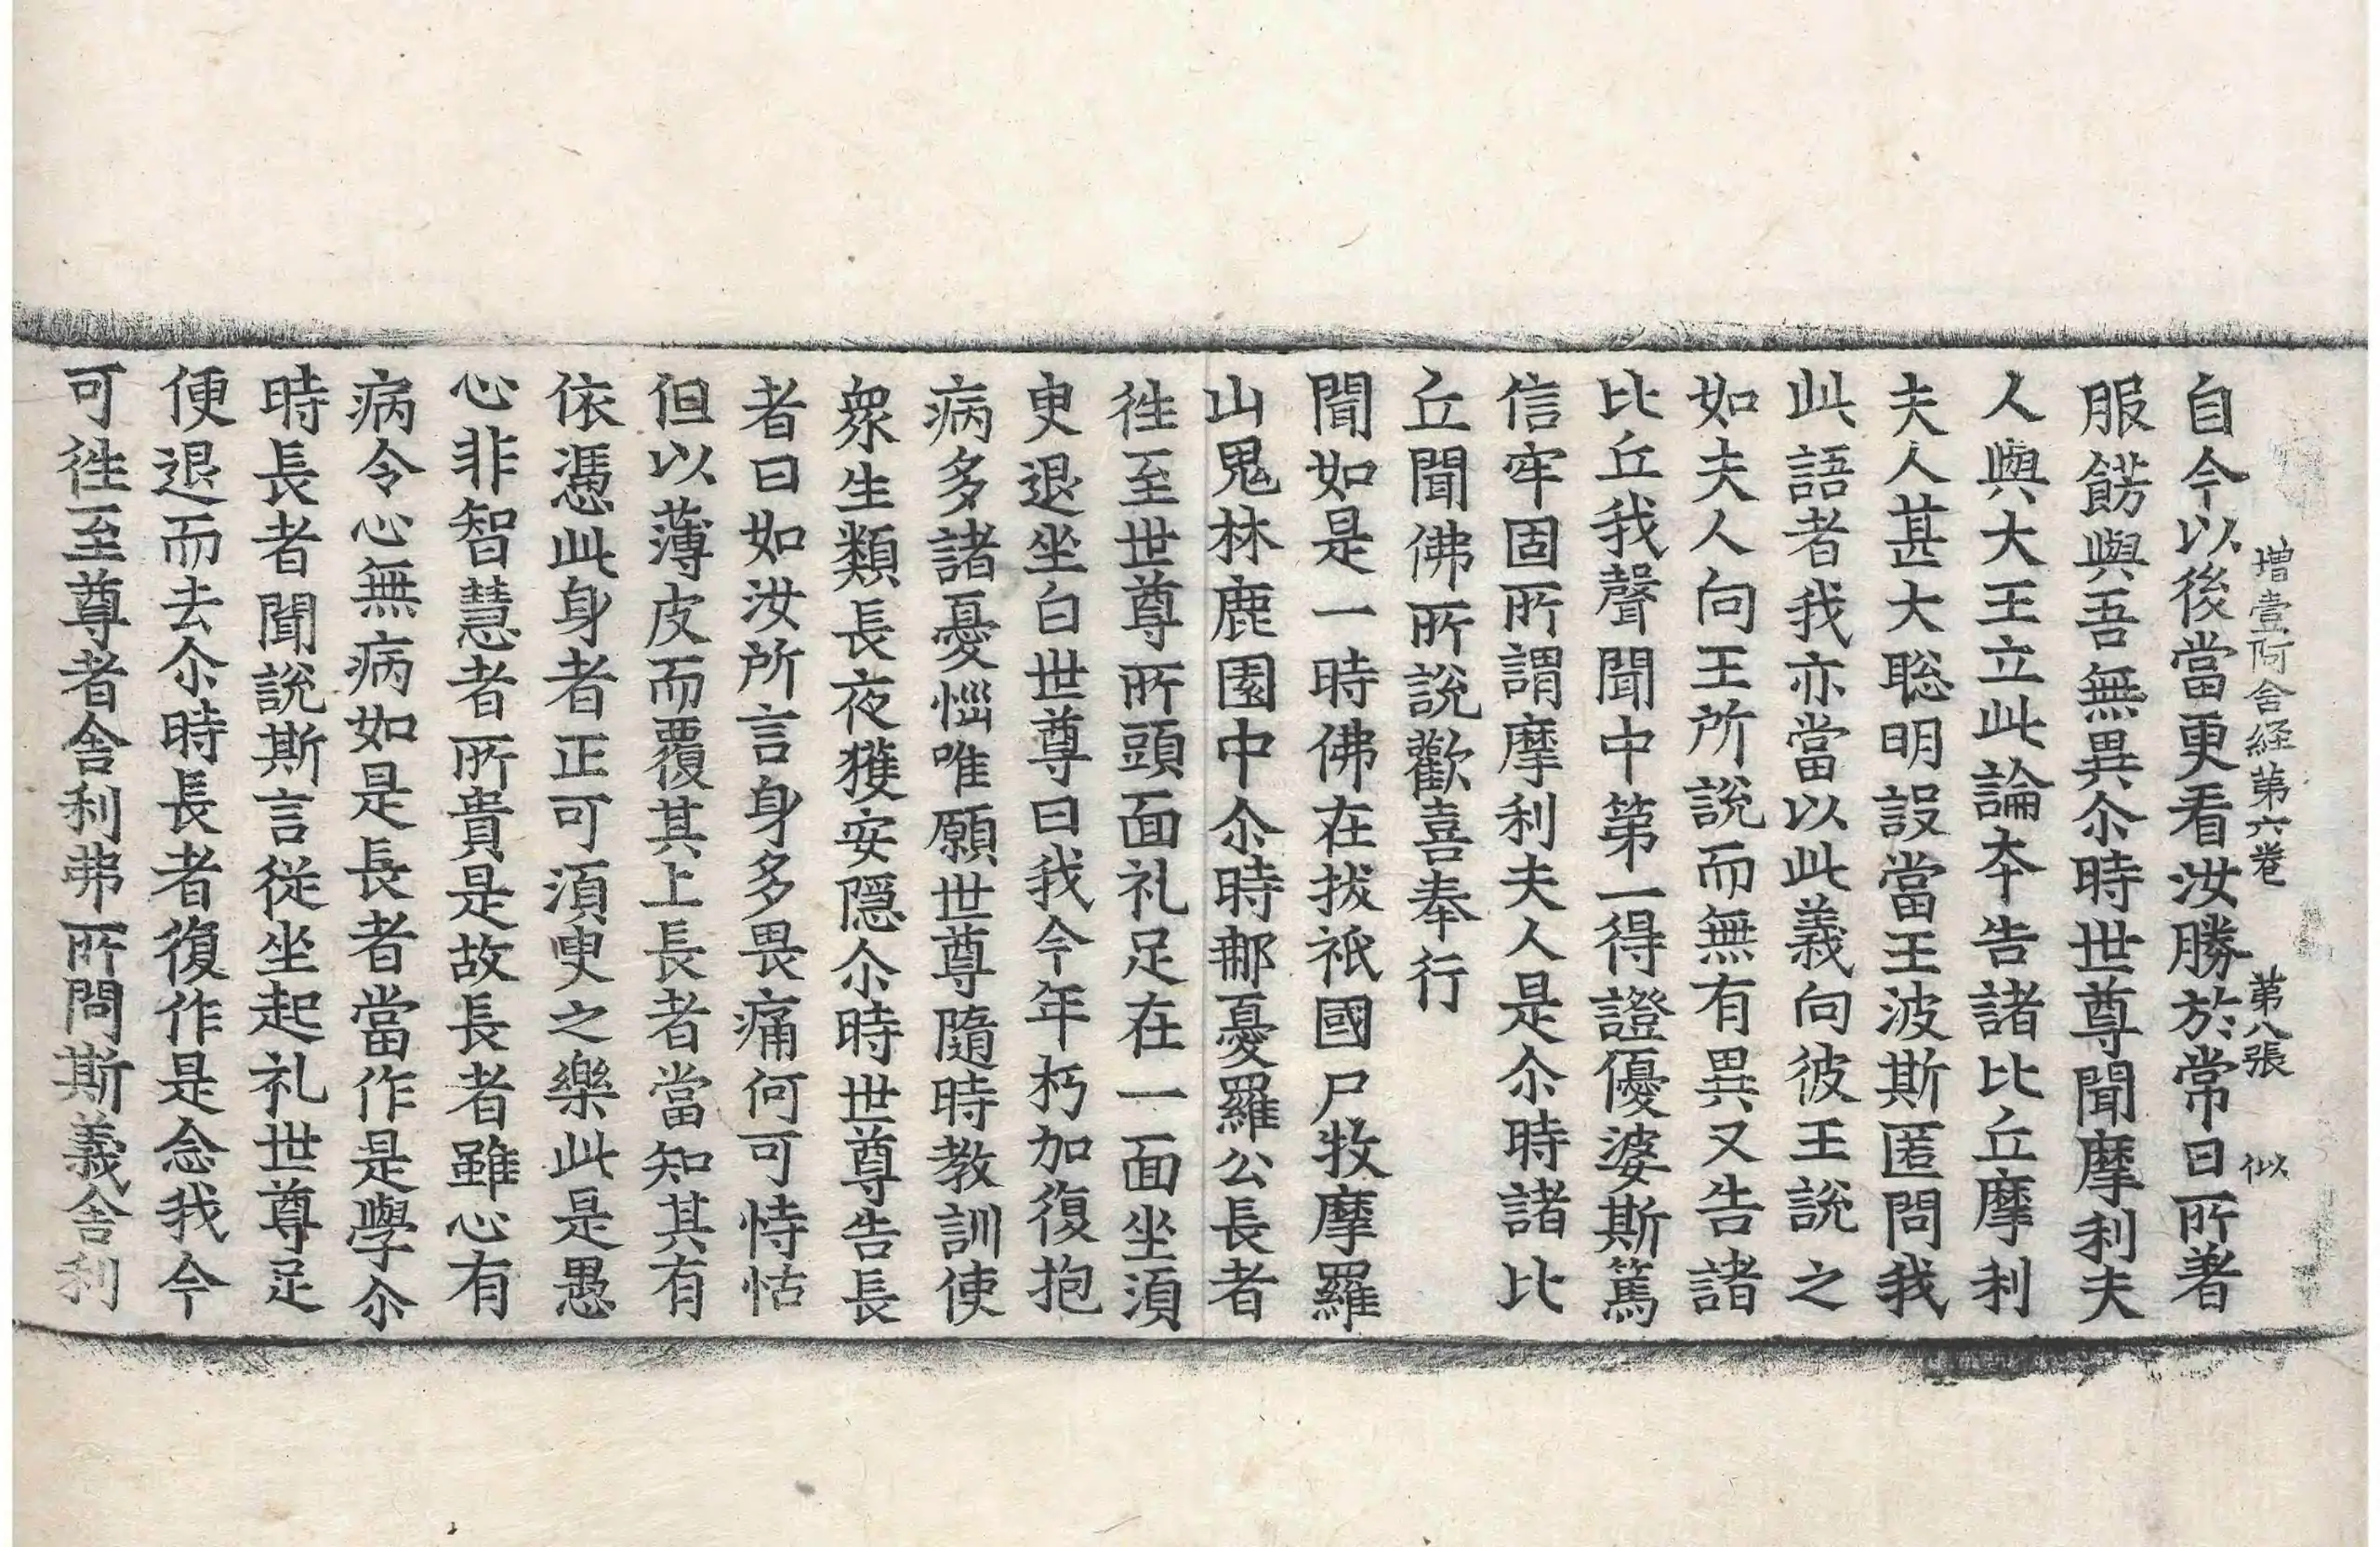 增壹阿含経第六卷 第八張 似
自今以後當更看汝勝於常日所著
服餝與吾無異尒時世尊聞摩利夫
人與大王立此論夲告諸比丘摩利
夫人甚大聡明設當王波斯匿問我
此語者我亦當以此義向彼王說之
如夫人向王所說而無有異又告諸
比丘我聲聞中第一得證優婆斯篤
信牢固所謂摩利夫人是尒時諸比
丘聞佛所說歡喜奉行
聞如是一時佛在拔祇國尸牧摩羅
山鬼林鹿園中尒時那憂羅公長者
徃至世尊所頭面礼足在一面坐湏
臾退坐白世尊曰我今年朽加復抱
病多諸憂惱唯願世尊隨時教訓使
衆生類長夜獲安隠尒時世尊告長
者曰如汝所言身多畏痛何可恃怙
但以薄皮而覆其上長者當知其有
依憑此身者正可湏臾之樂此是愚
心非智慧者所貴是故長者雖心有
病令心無病如是長者當作是學尒
時長者聞說斯言從坐起礼世尊足
便退而去尒時長者復作是念我今
可徃至尊者舎利弗所問斯義舎利